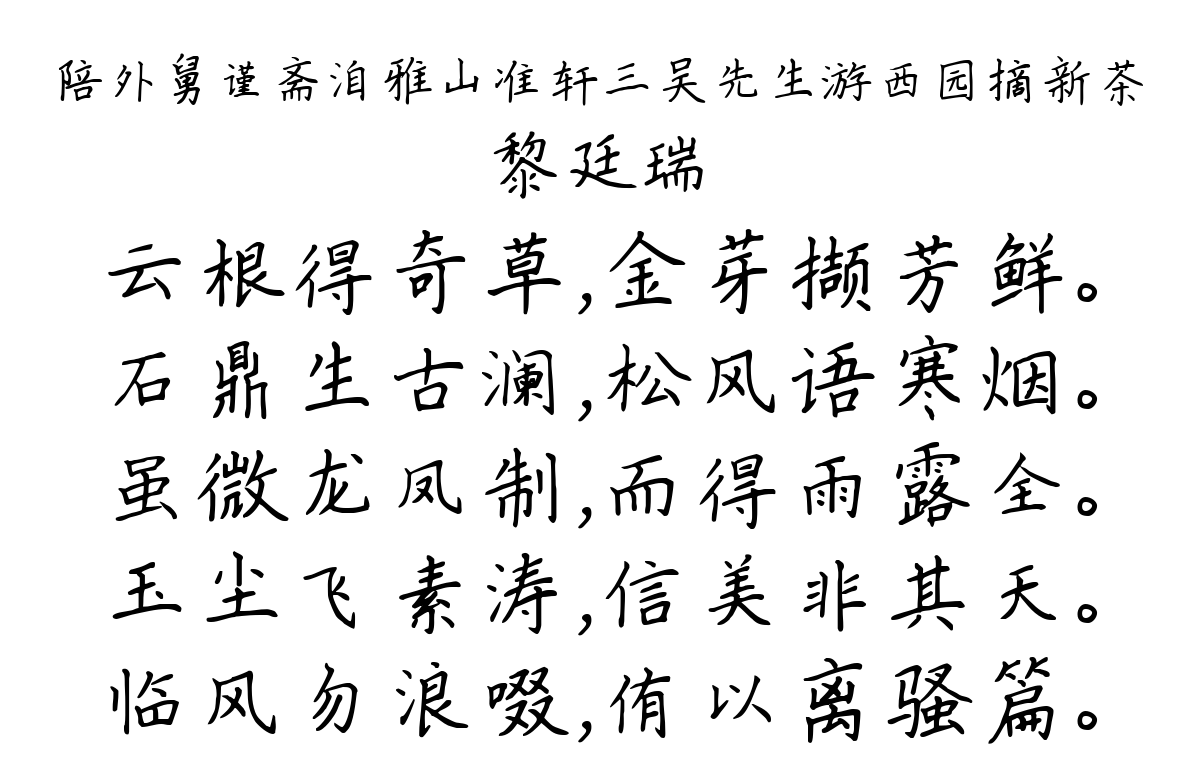 陪外舅谨斋洎雅山准轩三吴先生游西园摘新茶
黎廷瑞
云根得奇草,金芽撷芳鲜。
石鼎生古澜,松风语寒烟。
虽微龙凤制,而得雨露全。
玉尘飞素涛,信美非其天。
临风勿浪啜,侑以离骚篇。